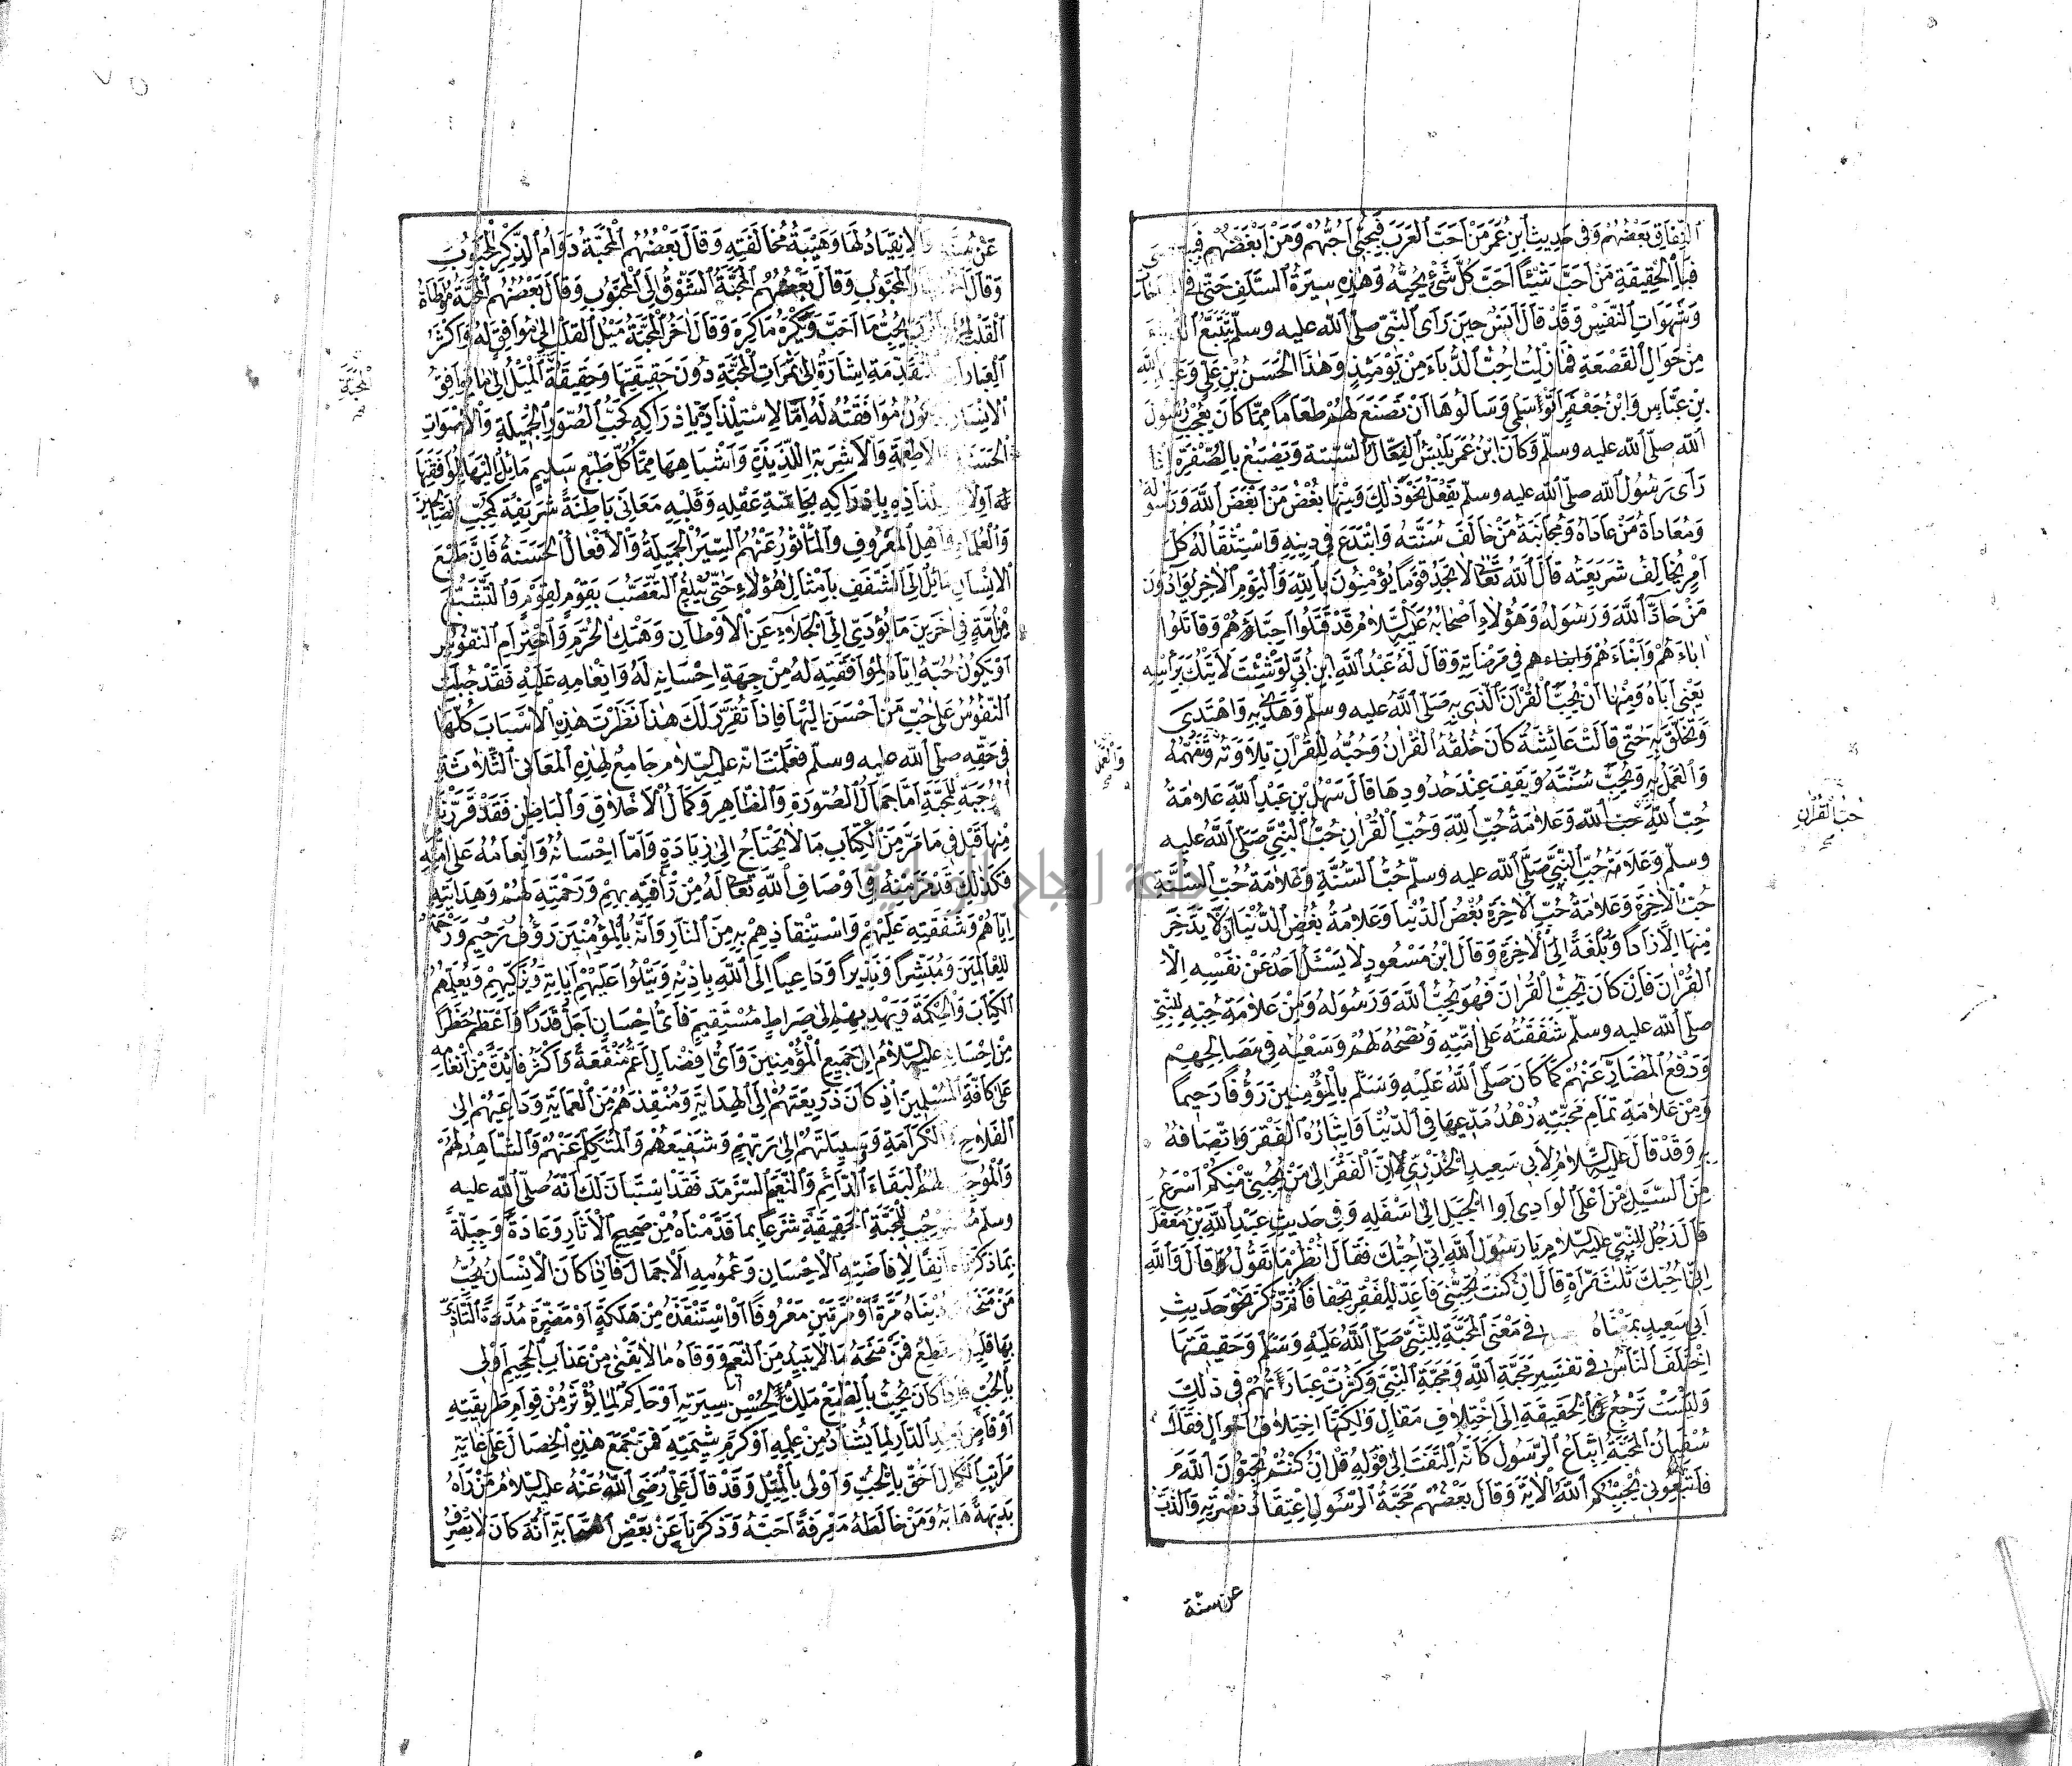 النفاق بعضهم وفي حديث ابن عمر من احب العرب فبحبي احبهم ومن ابغضهم
فبالحقيقة من احب شيئا احب كل شئ يحبه وهذه سيرة السلف حتى في
وشهوات النفس وقد قال انس حين راى النبي صلى الله عليه وسلم يتتبع الدباء
من حوالي القصعة فما زلت احب الدباء من يومئذ وهذا الحسن بن علي وعبد الله
بن عباس وابن جعفر اتوا سلمى وسالوها ان تصنع لهم طعاما مما كان يعجب رسول
الله صلى الله عليه وسلم وكان ابن عمر يلبس النعال السبتية ويصبغ بالصفرة اذا
راى رسول الله صلى الله عليه وسلم يفعل نحو ذلك ومنها بغض من ابغض الله ورسوله
ومعاداة من عاداه ومجانبة من خالف سنته وابتدع في دينه واستثقاله كل
امر يخالف شريعته قال الله تعالى لا تجد قوما يؤمنون بالله واليوم الاخر يوادون
من حاد الله ورسوله وهؤلاء اصحابه عليه السلام قد قتلوا احباءهم وقاتلوا
اباءهم وابناءهم في مرضاته وقال له عبد الله ابن ابي لو شئت لاتيتك براسه
يعني اباه ومنها ان يحب القران الذي به صلى الله عليه وسلم وهدى به واهتدى
وتخلق به حتى قالت عائشة كان خلقه القران وحبه للقران تلاوته وتفهمه
والعمل به ويحب سنته ويقف عند حدودها قال سهل بن عبد الله علامة
حب الله حب الله وعلامة حب الله وحب القران حب النبي صلى الله عليه
وسلم وعلامة حب النبي صلى الله عليه وسلم حب السنة وعلامة حب السنة
حب الاخرة وعلامة حب الاخرة بغض الدنيا وعلامة بغض الدنيا ان لا يدخر
منها الا زادا وبلغة الى الاخرة وقال ابن مسعود لا يسئل احد عن نفسه الا
القران فان كان يحب القران فهو يحب الله ورسوله ومن علامة حبه للنبي
صلى الله عليه وسلم شفقته على امته ونصحه لهم وسعيه في مصالحهم
ودفع المضار عنهم كما كان صلى الله عليه وسلم بالمؤمنين رؤفا رحيما
ومن علامة تمام محبته زهد مدعيها في الدنيا وايثاره الفقر واتصافه
به وقد قال عليه السلام لابي سعيد الخدري ان الفقر الى من يحبني منكم اسرع
من السيل من اعلى الوادي او الجبل الى اسفله وفي حديث عبد الله بن مغفل
قال رجل للنبي عليه السلام يا رسول الله اني احبك فقال انظر ما تقول قال والله
اني احبك ثلث مرة قال ان كنت تحبني فاعد للفقر تجفافا ثم ذكر نحو حديث
ابي سعيد بمعناه في معنى المحبة للنبي صلى الله عليه وسلم وحقيقتها
اختلف الناس في تفسير محبة الله ومحبة النبي وكثرت عباراتهم في ذلك
وليست ترجع في الحقيقة الى اختلاف مقال ولكنها اختلاف احوال فقال
سفيان المحبة اتباع الرسول كانه التفت الى قوله قل ان كنتم تحبون الله
فاتبعوني يحببكم الله الاية وقال بعضهم محبة الرسول اعتقاد نصرته والذب
عن سنة
والعمل
صح
حب القران
صح
عن سنته والانقياد لها وهيبة مخالفته وقال بعضهم المحبة دوام الذكر للمحبوب
وقال المحبوب وقال بعضهم المحبة الشوق الى المحبوب وقال بعضهم المحبة مواطاة
القلب يحب ما احب ويكره ما كره وقال اخر المحبة ميل القلب الى موافق له واكثر
العبارات المتقدمة اشارة الى ثمرات المحبة دون حقيقتها وحقيقة الميل الى ما يوافق
الانسان موافقته له اما لاستلذاذه بادراكه كحب الصور الجميلة والاصوات
الحسنة والاطعمة والاشربة اللذيذة واشباهها مما كل طبع سليم مائل اليها لموافقتها
له او لاستلذاذه بادراكه بحاسة عقله وقلبه معاني باطنة شريفة كحب الصالحين
والعلماء واهل المعروف والماثور عنهم السير الجميلة والافعال الحسنة فان طبع
الانسان مائل الى الشغف بامثال هؤلاء حتى يبلغ التعصب بقوم لقوم والتشيع
من امة في اخرين ما يؤدي الى الجلاء عن الاوطان وهتك الحرم واخترام النفوس
او يكون حبه اياه لموافقته له من جهة احسانه له وانعامه عليه فقد جبلت
النفوس على حب من احسن اليها فاذا تقرر لك هذا نظرت هذه الاسباب كلها
في حقه صلى الله عليه وسلم فعلمت انه عليه السلام جامع لهذه المعاني الثلاثة
الموجبة للمحبة اما جمال الصورة والظاهر وكمال الاخلاق والباطن فقد قررنا
منها قبل في ما مر من الكتاب ما لا يحتاج الى زيادة واما احسانه وانعامه على امته
فكذلك قد مر منه في اوصاف الله تعالى له من رافته بهم ورحمته لهم وهدايته
اياهم وشفقته عليهم واستنقاذهم به من النار وانه بالمؤمنين رؤف رحيم ورحمة
للعالمين ومبشرا ونذيرا وداعيا الى الله باذنه ويتلوا عليهم اياته ويزكيهم ويعلمهم
الكتاب والحكمة ويهديهم الى صراط مستقيم فاي احسان اجل قدرا واعظم خطرا
من احسانه عليه السلام الى جميع المؤمنين واي افضال اعم منفعة واكثر فائدة من انعامه
على كافة المسلمين اذ كان ذريعتهم الى الهداية ومنقذهم من العماية وداعيهم الى
الفلاح والكرامة ووسيلتهم الى ربهم وشفيعهم والمتكلم عنهم والشاهد لهم
والموجب لهم البقاء الدائم والنعيم السرمد فقد استبان لك انه صلى الله عليه
وسلم مستوجب للمحبة الحقيقية شرعا بما قدمناه من صحيح الاثار وعادة وجبلة
بما ذكرناه انفا لافاضته الاحسان وعمومه الاجمال فاذا كان الانسان يحب
من منحه دنياه مرة او مرتين معروفا او استنقذه من هلكة او مضرة مدة التاذي
بها قليل منقطع فمن منحه ما لا يبيد من النعيم ووقاه ما لا يفنى من عذاب الجحيم اولى
بالحب فاذا كان يحب بالطبع ملك لحسن سيرته او حاكم لما يؤثر من قوام طريقته
او قاض بعيد الدار لما يشاد من علمه او كرم شيمته فمن جمع هذه الخصال على غاية
مراتب الكمال احق بالحب واولى بالميل وقد قال علي رضي الله عنه عليه السلام من راه
بديهة هابه ومن خالطه معرفة احبه وذكرنا عن بعض الصحابة انه كان لا يصرف
المحبة
صح
٧٥